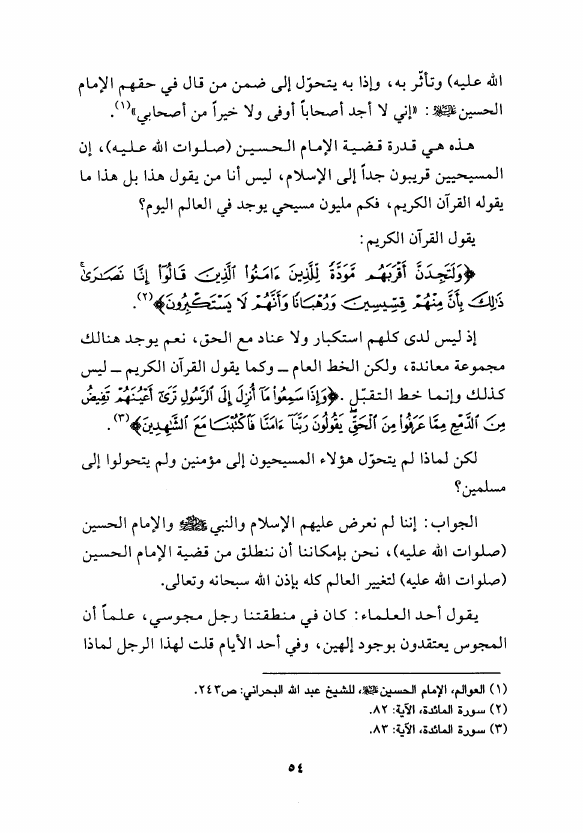 الله عليه) وتأثّر به، وإذا به يتحوّل إلى ضمن من قال في حقهم الإمام
الحسين عليه السلام: «إني لا أجد أصحاباً أوفى ولا خيراً من أصحابي»(١).
هذه هي قدرة قضية الإمام الحسين (صلوات الله عليه)، إن
المسيحيين قريبون جداً إلى الإسلام، ليس أنا من يقول هذا بل هذا ما
يقوله القرآن الكريم، فكم مليون مسيحي يوجد في العالم اليوم؟
يقول القرآن الكريم:
﴿وَلَتَجِدَنَّ أَقْرَبَهُم مَّوَدَّةً لِّلَّذِينَ ءَامَنُوا۟ ٱلَّذِينَ قَالُوٓا۟ إِنَّا نَصَٰرَىٰ ۚ
ذَٰلِكَ بِأَنَّ مِنْهُمْ قِسِّيسِينَ وَرُهْبَانًا وَأَنَّهُمْ لَا يَسْتَكْبِرُونَ﴾(٢).
إذ ليس لدى كلهم استكبار ولا عناد مع الحق، نعم يوجد هنالك
مجموعة معاندة، ولكن الخط العام ــ وكما يقول القرآن الكريم ــ ليس
كذلك وإنما خط التقبّل. ﴿وَإِذَا سَمِعُوا۟ مَآ أُنزِلَ إِلَى ٱلرَّسُولِ تَرَىٰٓ أَعْيُنَهُمْ تَفِيضُ
مِنَ ٱلدَّمْعِ مِمَّا عَرَفُوا۟ مِنَ ٱلْحَقِّ ۖ يَقُولُونَ رَبَّنَآ ءَامَنَّا فَٱكْتُبْنَا مَعَ ٱلشَّٰهِدِينَ﴾(٣).
لكن لماذا لم يتحوّل هؤلاء المسيحيون إلى مؤمنين ولم يتحولوا إلى
مسلمين؟
الجواب: إننا لم نعرض عليهم الإسلام والنبي ﷺ والإمام الحسين
(صلوات الله عليه)، نحن بإمكاننا أن ننطلق من قضية الإمام الحسين
(صلوات الله عليه) لتغيير العالم كله بإذن الله سبحانه وتعالى.
يقول أحد العلماء: كان في منطقتنا رجل مجوسي، علماً أن
المجوس يعتقدون بوجود إلهين، وفي أحد الأيام قلت لهذا الرجل لماذا
(١) العوالم، الإمام الحسين عليه السلام، للشيخ عبد الله البحراني: ص٢٤٣.
(٢) سورة المائدة، الآية: ٨٢.
(٣) سورة المائدة، الآية: ٨٣.
٥٤